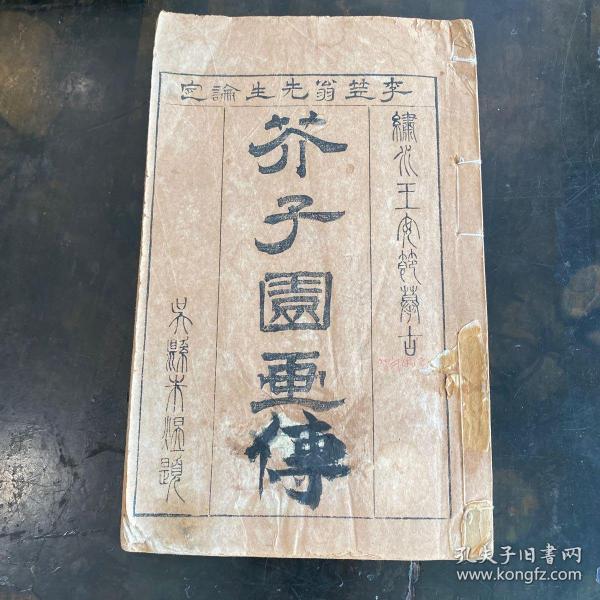 李笠翁先生論定
繡水王安節摹古
芥子園画傳
吳縣朱湜題
孔夫子旧書网
www.kongfz.com